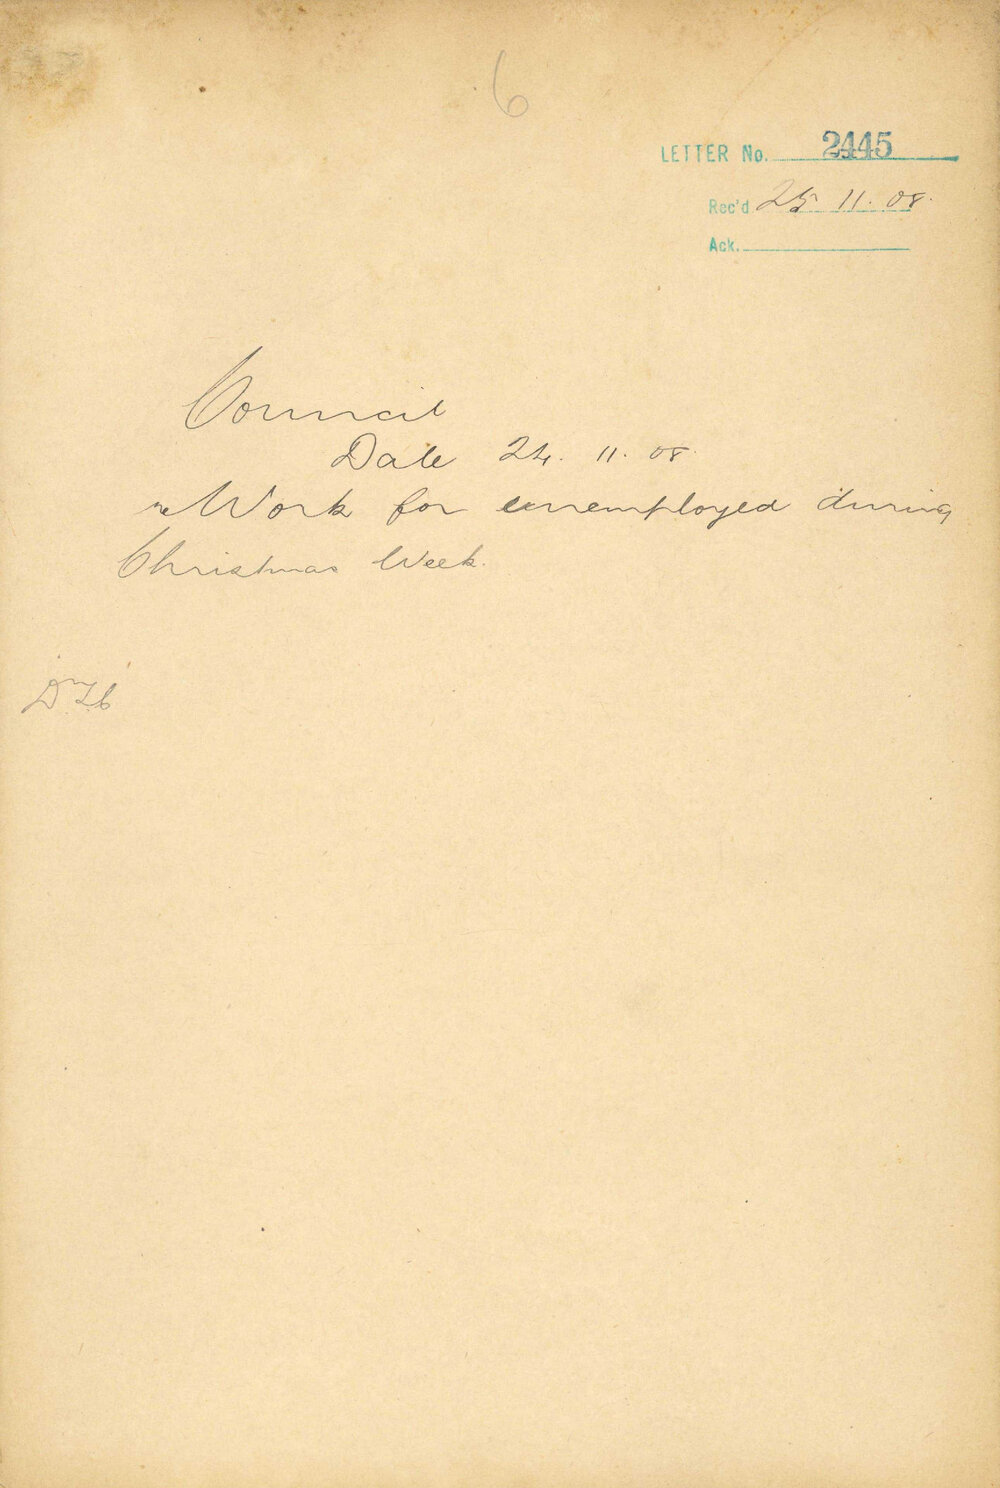 6
LETTER No. 2445
Rec'd 25 11. 08.
Ack.
Council
Date 24. 11. 08.
re Work for unemployed during
Christmas Week.